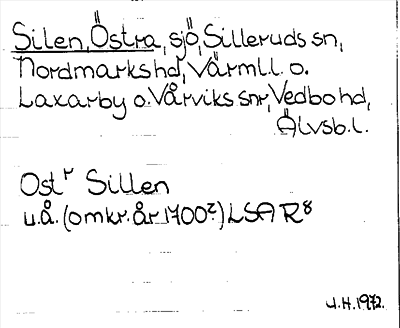 Silen, Östra, sjö, Silleruds sn,
Nordmarks hd, Värml. l. o.
Laxarby o. Vårviks snr, Vedbo hd,
Älvsb. l.
Ost^r Sillen
u.å. (omkr. år 1700?) LSA R⁸
U.H. 1972.